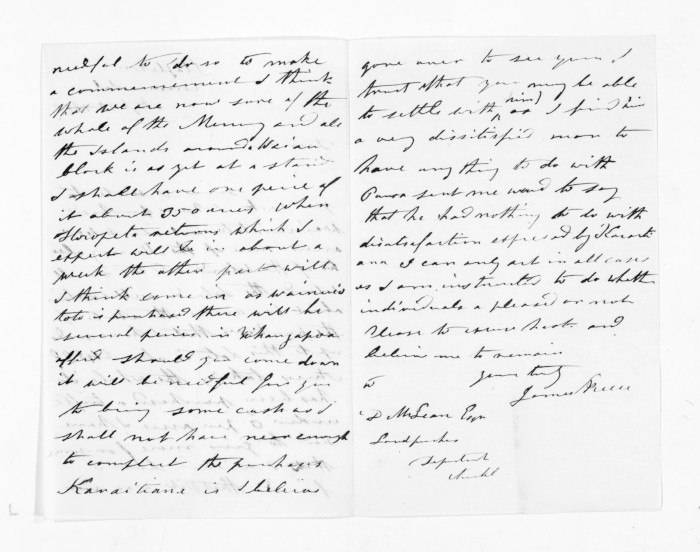 needful to do so to make
a commencement I think
that we are now sure of the
whole of the and all
the Islands around
block is as yet at a stand
I shall have one peice of
it about 350 acres when
returns which I
expect will be in about a
week the other part will
I think come in as
toto is purchased there will be
several peices in
offered should you come down
it will be needful for you
to bring some cash as I
shall not have near enough
to complect the purchases
Karaitiana is I believe
gone over to see you I
trust that you may be able
to settle with him as I find him
a very dissitisfied man to
have anything to do with
sent me word to say
that he had nothing to do with
disatisfaction expresed by Karaiti
ana I can only act in all cases
as I am instructed to do whether
individuals a pleased or not
Please to excuse haste and
beleive me to remain
yours truly
James Preece
to
D McLean Esqr
Land purchas
Department
Auckld